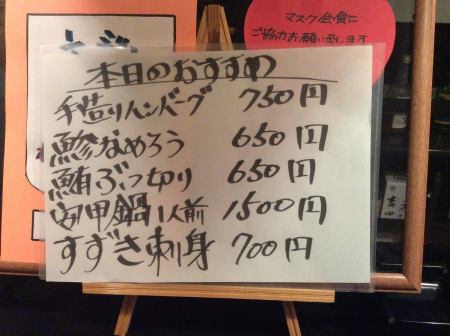 マスク会食に
ご協力お願い致します
本日のおすすめ
手造りハンバーグ 750円
鯵なめろう 650円
鮪ぶつ切り 650円
安甲鍋1人前 1500円
すずき刺身 700円